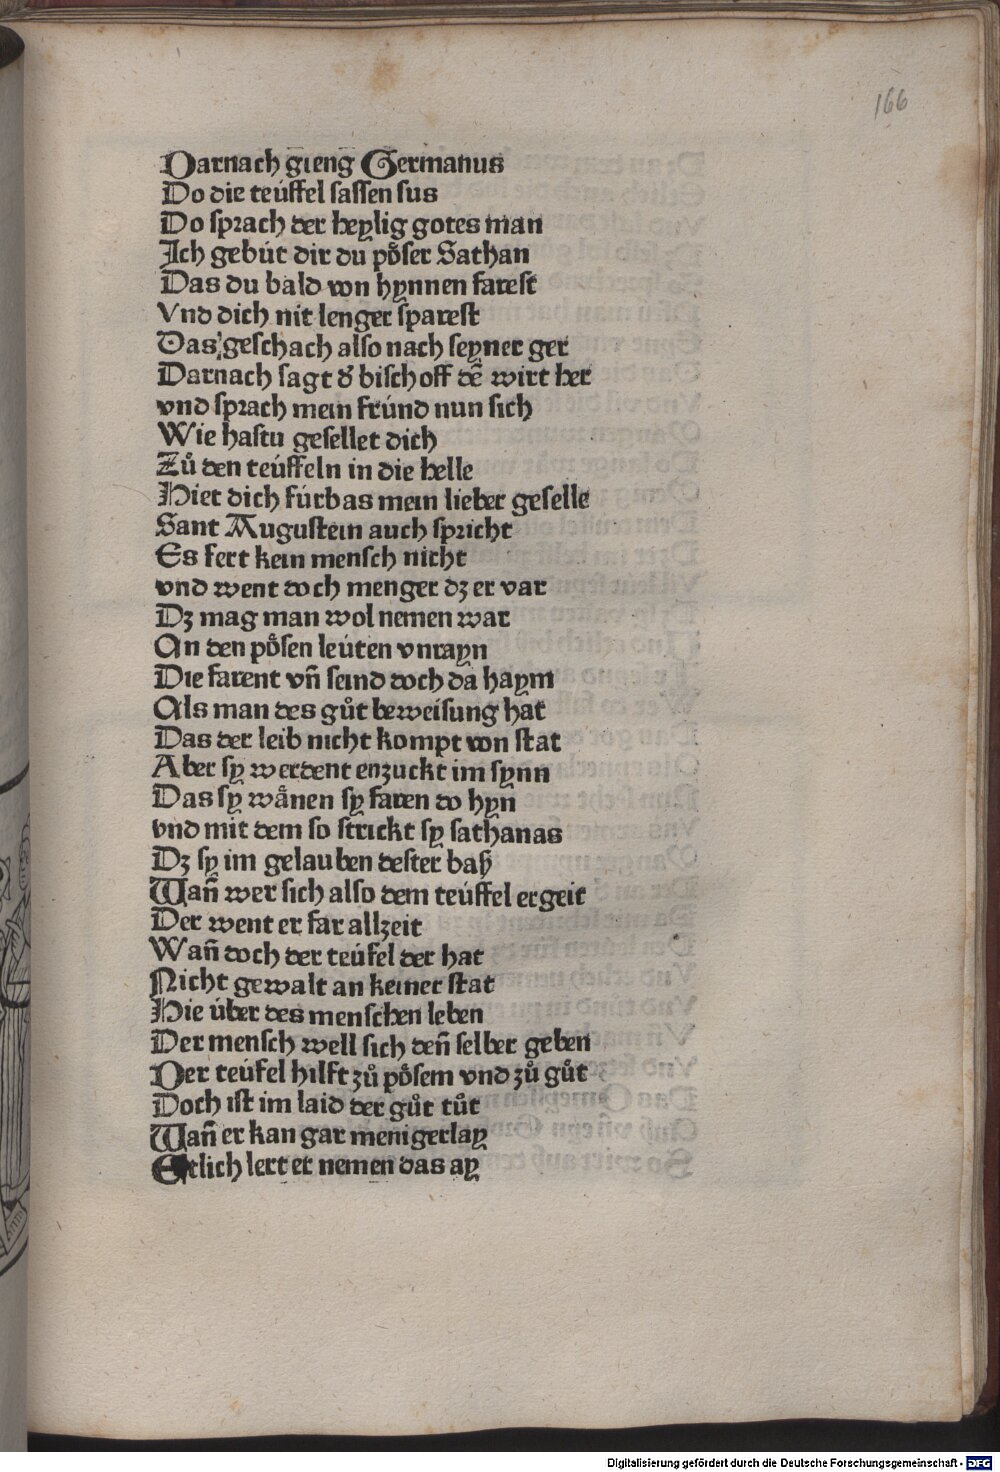 166
Darnach gieng Germanus
Do die teúffel sassen sus
Do sprach der heylig gotes man
Ich gebút dir du poͤser Sathan
Das du bald von hynnen farest
Vnd dich nit lenger sparest
Das geschach also nach seyner ger
Darnach sagt d̕ bischoff dē wirt her
vnd sprach mein frúnd nun sich
Wie hastu gesellet dich
Zuͦ den teúffeln in die helle
Hiet dich fúrbas mein lieber geselle
Sant Augustein auch spricht
Es fert kein mensch nicht
vnd went doch menger dz er var
Dz mag man wol nemen war
An den poͤsen leúten vnrayn
Die farent vñ seind doch da haym
Als man des guͦt beweisung hat
Das der leib nicht kompt von stat
Aber sy werdent enzuckt im synn
Das sy waͤnen sy faren do hyn
vnd mit dem so strickt sy sathanas
Dz sy im gelauben dester baß
Wañ wer sich also dem teúffel ergeit
Der went er far allzeit
Wañ doch der teúfel der hat
Nicht gewalt an keiner stat
Hie úber des menschen leben
Der mensch well sich deñ selber geben
Der teúfel hilft zuͦ poͤsem vnd zuͦ guͦt
Doch ist im laid der guͦt tuͦt
Wañ er kan gar menigerlay
Etlich lert er nemen das ay
Digitalisierung gefördert durch die Deutsche Forschungsgemeinschaft - DFG